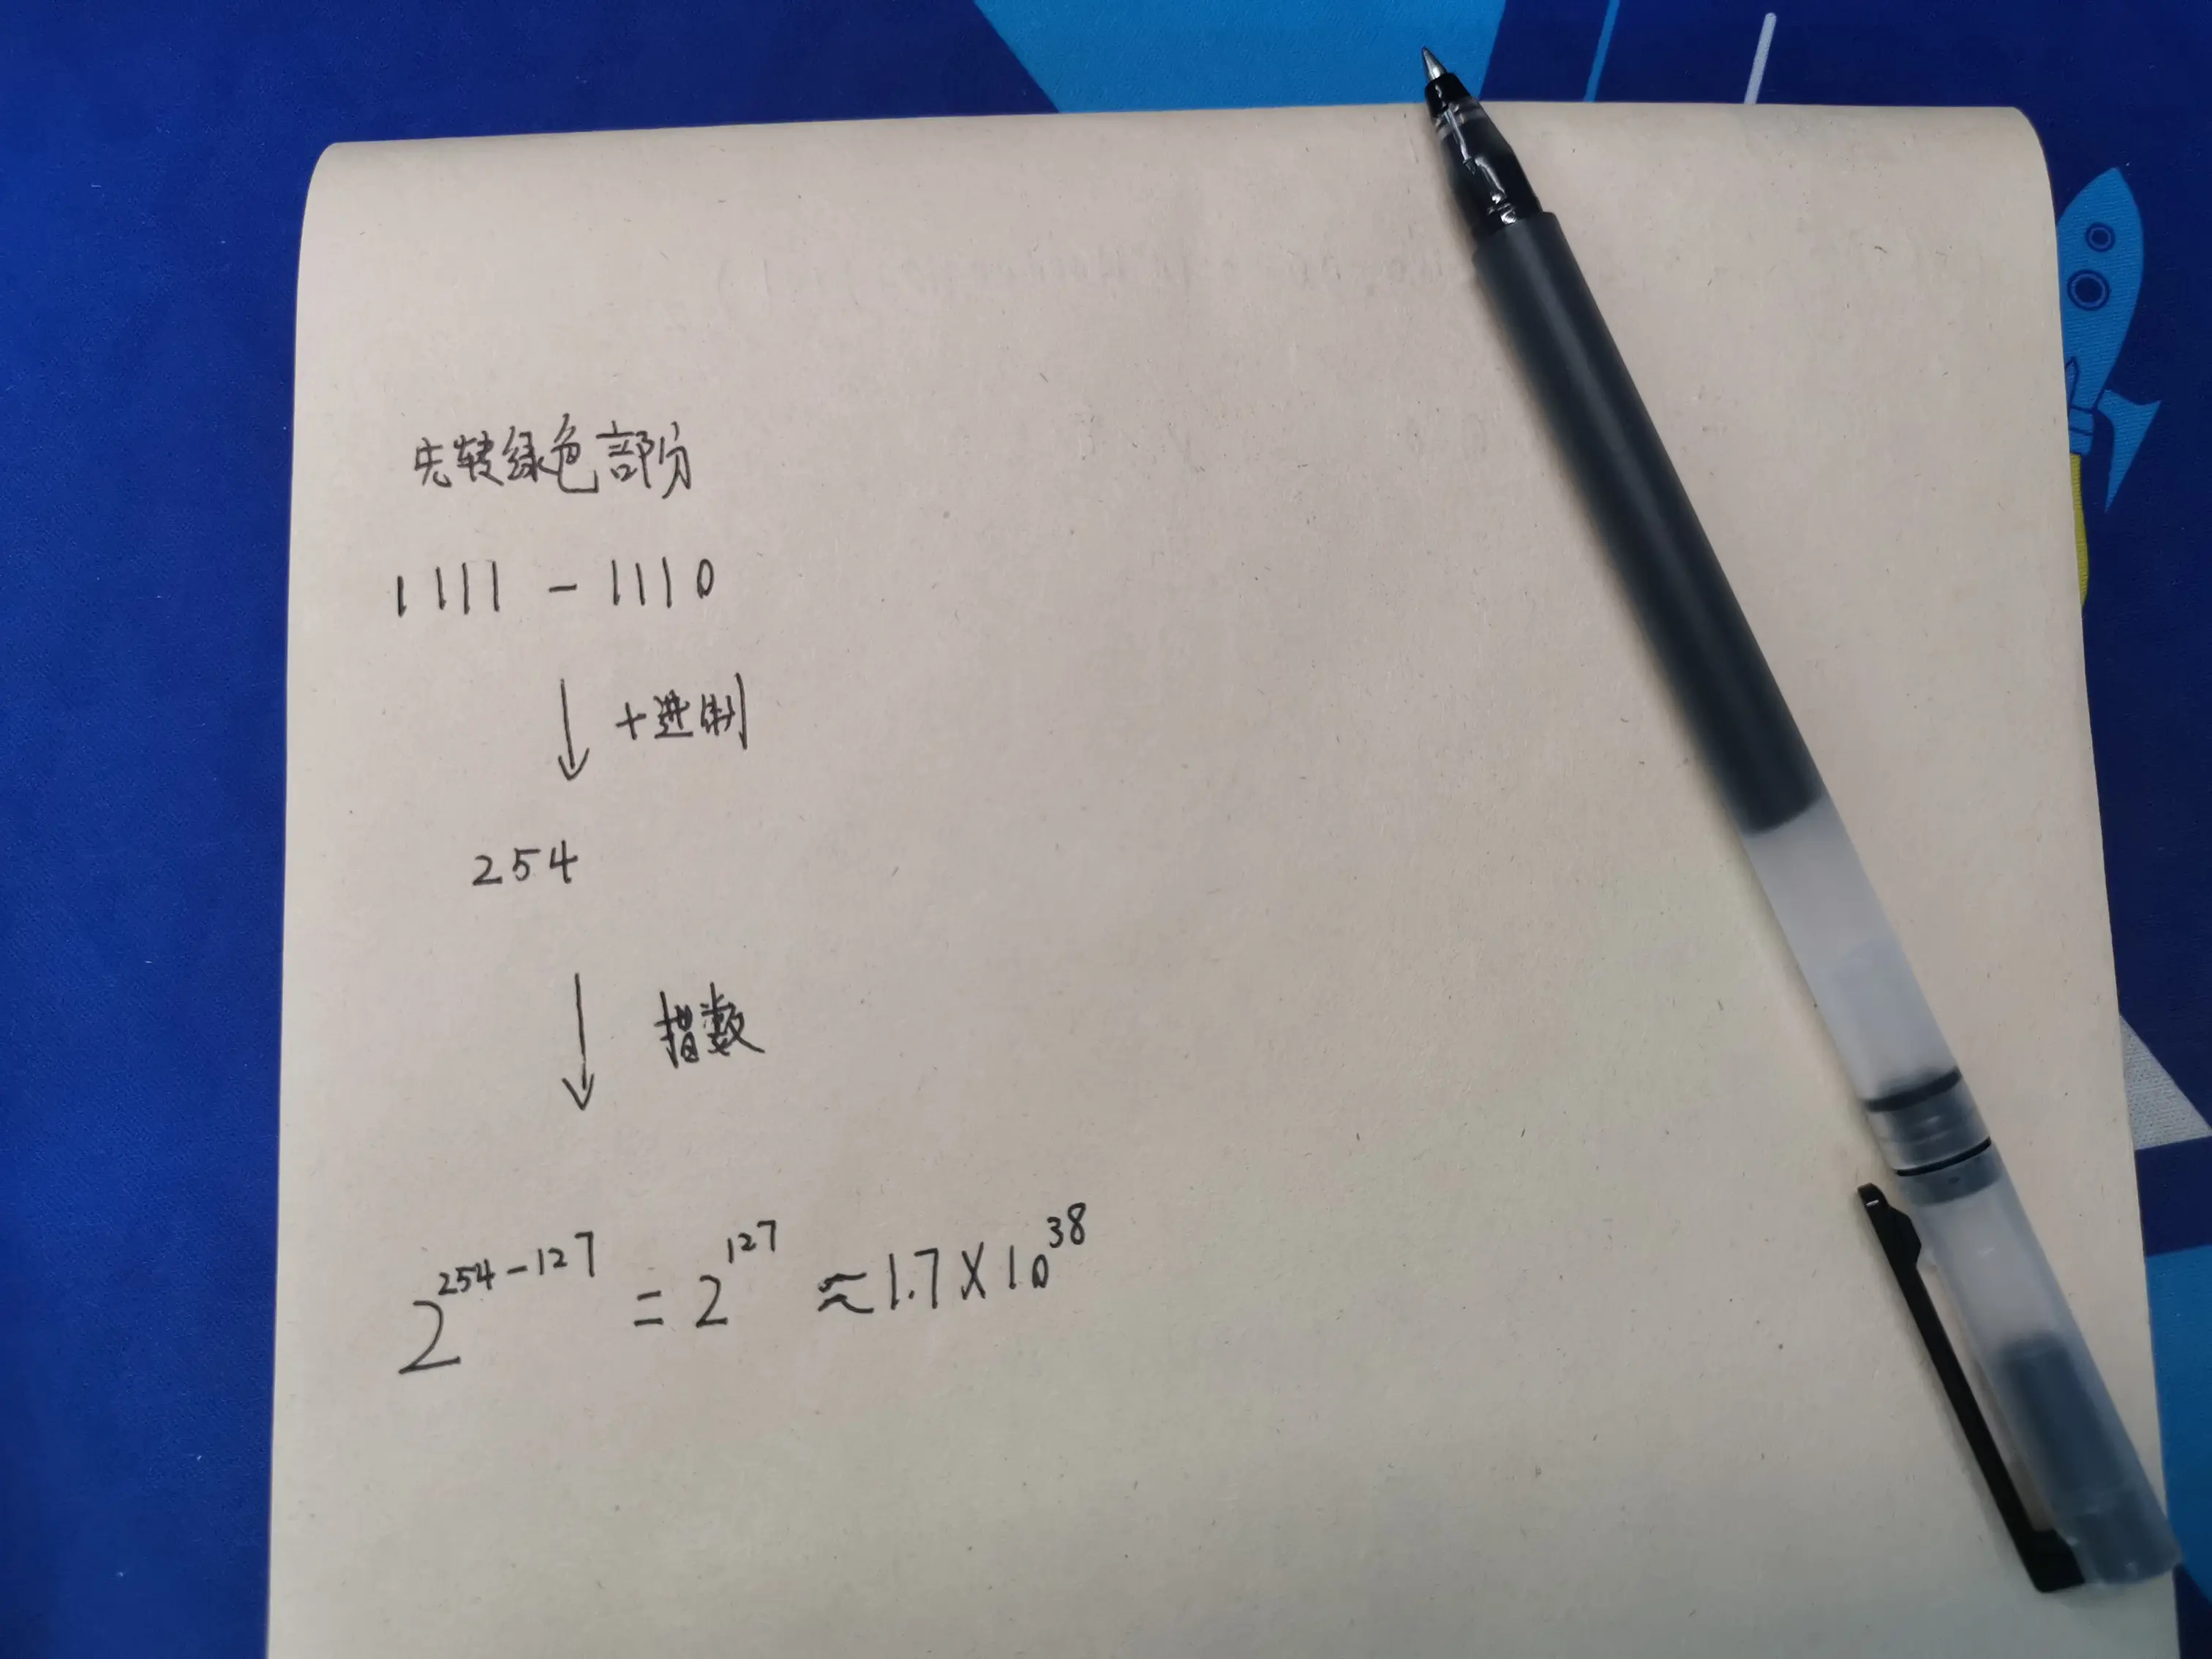 先转绿色部分
1111 - 1110
↓ 十进制
254
↓ 指数
2^254-127 = 2^127 ≈ 1.7 × 10^38